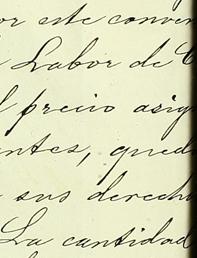 or este conven
Labor de C
l precio asig
antes, qued
sus derecho
La cantidad